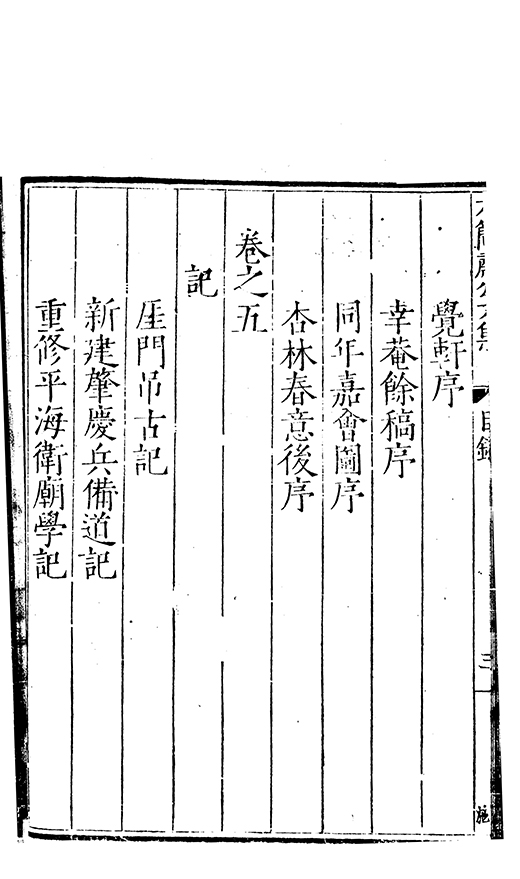 覺軒序
幸菴餘稿序
同年嘉會圖序
杏林春意後序
卷之五
記
厓門吊古記
新建肇慶兵備道記
重修平海衛廟學記
目錄
三